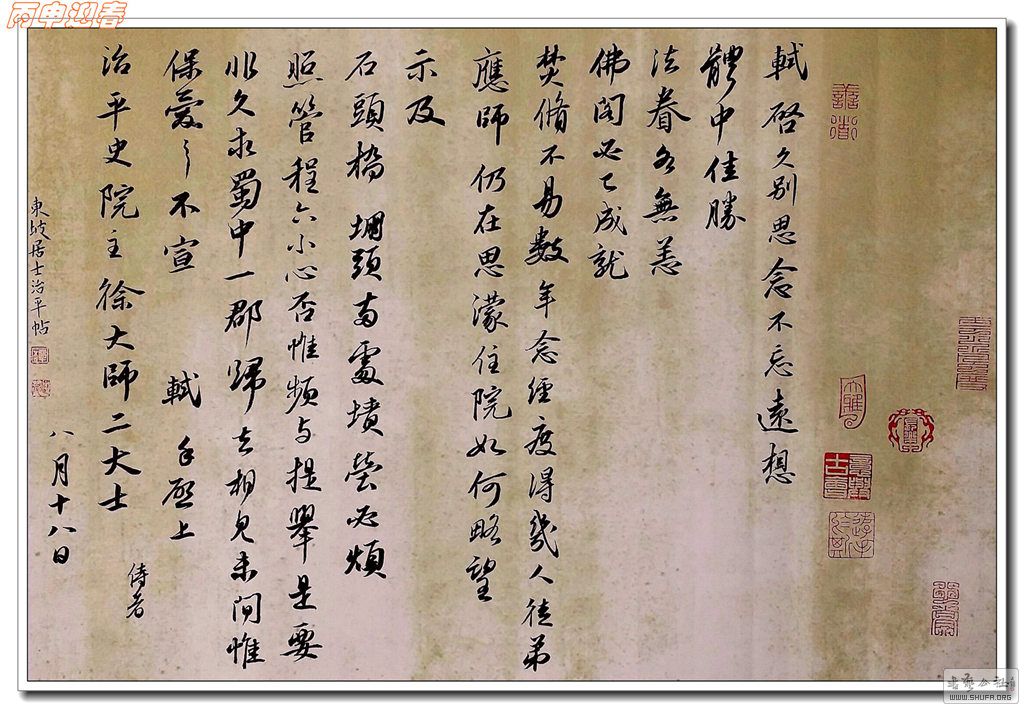 丙申迎春
軾啓久别思念不忘遠想
體中佳勝
法眷各無恙
佛閣必已成就
焚脩不易數年念經度得幾人徒弟
應師仍在思濛住院如何略望
示及
石頭橋堋頭两處墳塋必煩
照管程六小心否惟頻与提舉是要
非久求蜀中一郡歸去相見未間惟
保愛〻不宣 軾手啓上
治平史院主徐大師二大士 侍者
八月十八日
東坡居士治平帖
WWW.SHUFA.ORG